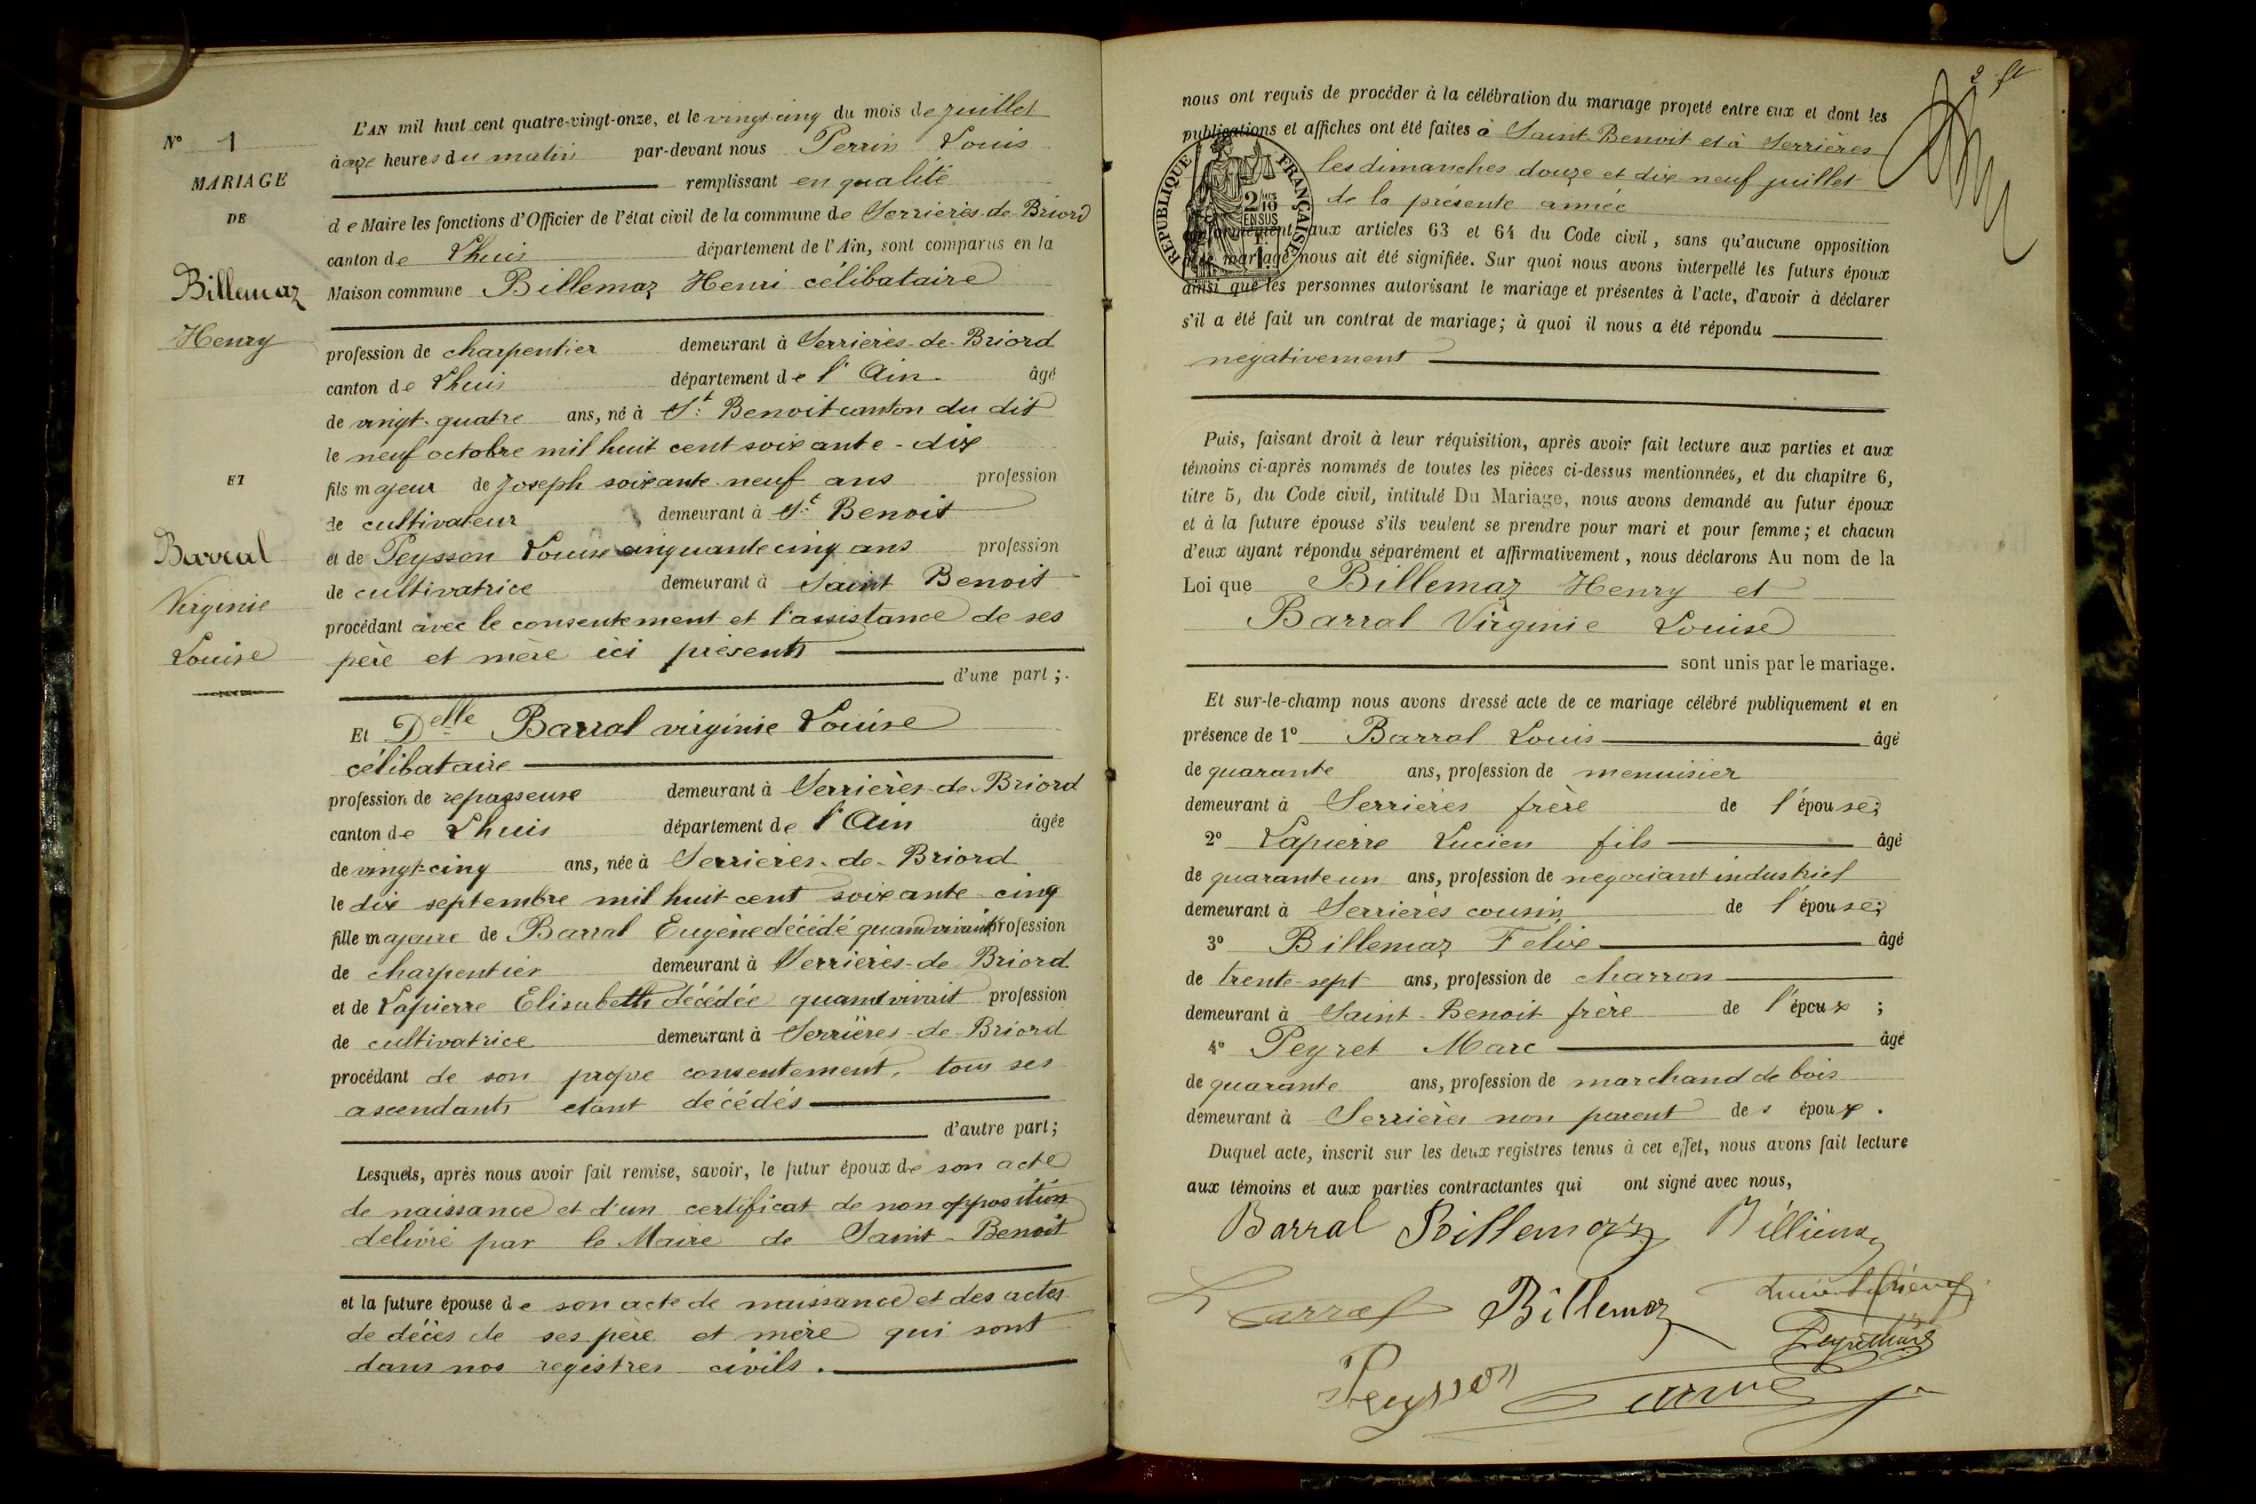 N° 1
MARIAGE
DE
Billemaz
Henry
ET
Barral
Virginie
Louise
L'AN mil huit cent quatre-vingt-onze, et le vingt-cinq du mois de juillet
à onze heures du matin par-devant nous Perrin Louis
remplissant en qualité
de Maire les fonctions d'Officier de l'état civil de la commune de Serrières-de-Briord
canton de Lhuis département de l'Ain, sont comparus en la
Maison commune Billemaz Henri célibataire
profession de charpentier demeurant à Serrières-de-Briord
canton de Lhuis département de l'Ain âgé
de vingt-quatre ans, né à St Benoit canton du dit
le neuf octobre mil huit cent soixante-dix
fils majeur de Joseph soixante-neuf ans profession
de cultivateur demeurant à St Benoit
et de Peysson Louise cinquante cinq ans profession
de cultivatrice demeurant à Saint Benoit
procédant avec le consentement et l'assistance de ses
père et mère ici présents
d'une part ;
Et Delle Barral virginie Louise
célibataire
profession de repasseuse demeurant à Serrières-de-Briord
canton de Lhuis département de l'Ain âgée
de vingt-cinq ans, née à Serrières-de-Briord
le dix septembre mil huit cent soixante-cinq
fille majeure de Barral Eugène décédé quand vivait profession
de charpentier demeurant à Serrières-de-Briord
et de Lapierre Elisabeth décédée quand vivait profession
de cultivatrice demeurant à Serrières-de-Briord
procédant de son propre consentement, tous ses
ascendants etant décédés
d'autre part ;
Lesquels, après nous avoir fait remise, savoir, le futur époux de son acte
de naissance et d'un certificat de non opposition
délivré par le Maire de Saint-Benoit
et la future épouse de son acte de naissance et des actes
de décès de ses père et mère qui sont
dans nos registres civils.
2
nous ont requis de procéder à la célébration du mariage projeté entre eux et dont les
publications et affiches ont été faites à Saint-Benoit et à Serrières
les dimanches douze et dix neuf juillet
de la présente année
RÉPUBLIQUE FRANÇAISE
2/10 EN SUS
conformément aux articles 63 et 64 du Code civil, sans qu'aucune opposition
mariage nous ait été signifiée. Sur quoi nous avons interpellé les futurs époux
ainsi que les personnes autorisant le mariage et présentes à l'acte, d'avoir à déclarer
s'il a été fait un contrat de mariage ; à quoi il nous a été répondu
négativement
Puis, faisant droit à leur réquisition, après avoir fait lecture aux parties et aux
témoins ci-après nommés de toutes les pièces ci-dessus mentionnées, et du chapitre 6,
titre 5, du Code civil, intitulé Du Mariage, nous avons demandé au futur époux
et à la future épouse s'ils veulent se prendre pour mari et pour femme ; et chacun
d'eux ayant répondu séparément et affirmativement, nous déclarons Au nom de la
Loi que Billemaz Henry et
Barral Virginie Louise
sont unis par le mariage.
Et sur-le-champ nous avons dressé acte de ce mariage célébré publiquement et en
présence de 1° Barral Louis âgé
de quarante ans, profession de menuisier
demeurant à Serrières frère de l'épouse ;
2° Lapierre Lucien fils âgé
de quarante un ans, profession de negociant industriel
demeurant à Serrières cousin de l'épouse ;
3° Billemaz Felix âgé
de trente-sept ans, profession de charron
demeurant à Saint-Benoit frère de l'époux ;
4° Peyret Marc âgé
de quarante ans, profession de marchand de bois
demeurant à Serrières non parent des époux.
Duquel acte, inscrit sur les deux registres tenus à cet effet, nous avons fait lecture
aux témoins et aux parties contractantes qui ont signé avec nous,
Barral Billemaz Billiemaz
L Barral Billemaz Lucien Lapierre
Peyret Marc
Peysson Perrin